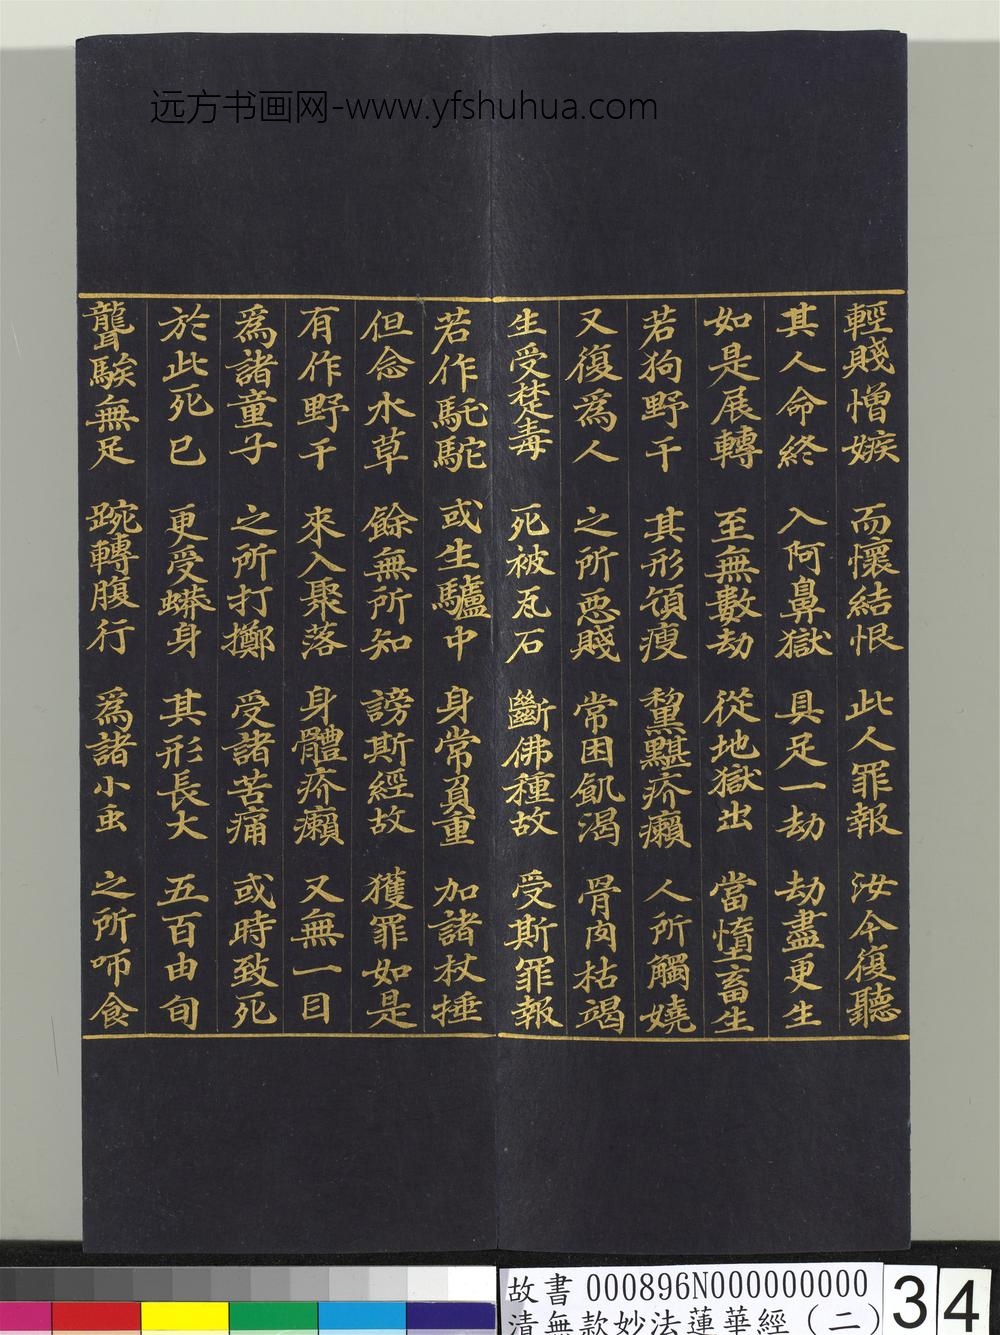 远方书画网-www.yfshuhua.com
輕賤憎嫉 而懷結恨 此人罪報 汝今復聽
其人命終 入阿鼻獄 具足一劫 劫盡更生
如是展轉 至無數劫 從地獄出 當墮畜生
若狗野干 其形頷瘦 黧黮疥癩 人所觸嬈
又復為人 之所惡賤 常困飢渴 骨肉枯竭
生受楚毒 死被瓦石 斷佛種故 受斯罪報
若作馲駝 或生驢中 身常負重 加諸杖捶
但念水草 餘無所知 謗斯經故 獲罪如是
有作野干 來入聚落 身體疥癩 又無一目
為諸童子 之所打擲 受諸苦痛 或時致死
於此死已 更受蟒身 其形長大 五百由旬
聾騃無足 踠轉腹行 為諸小虫 之所咂食
故書 000896N000000000
清無款妙法蓮華經（二）
34